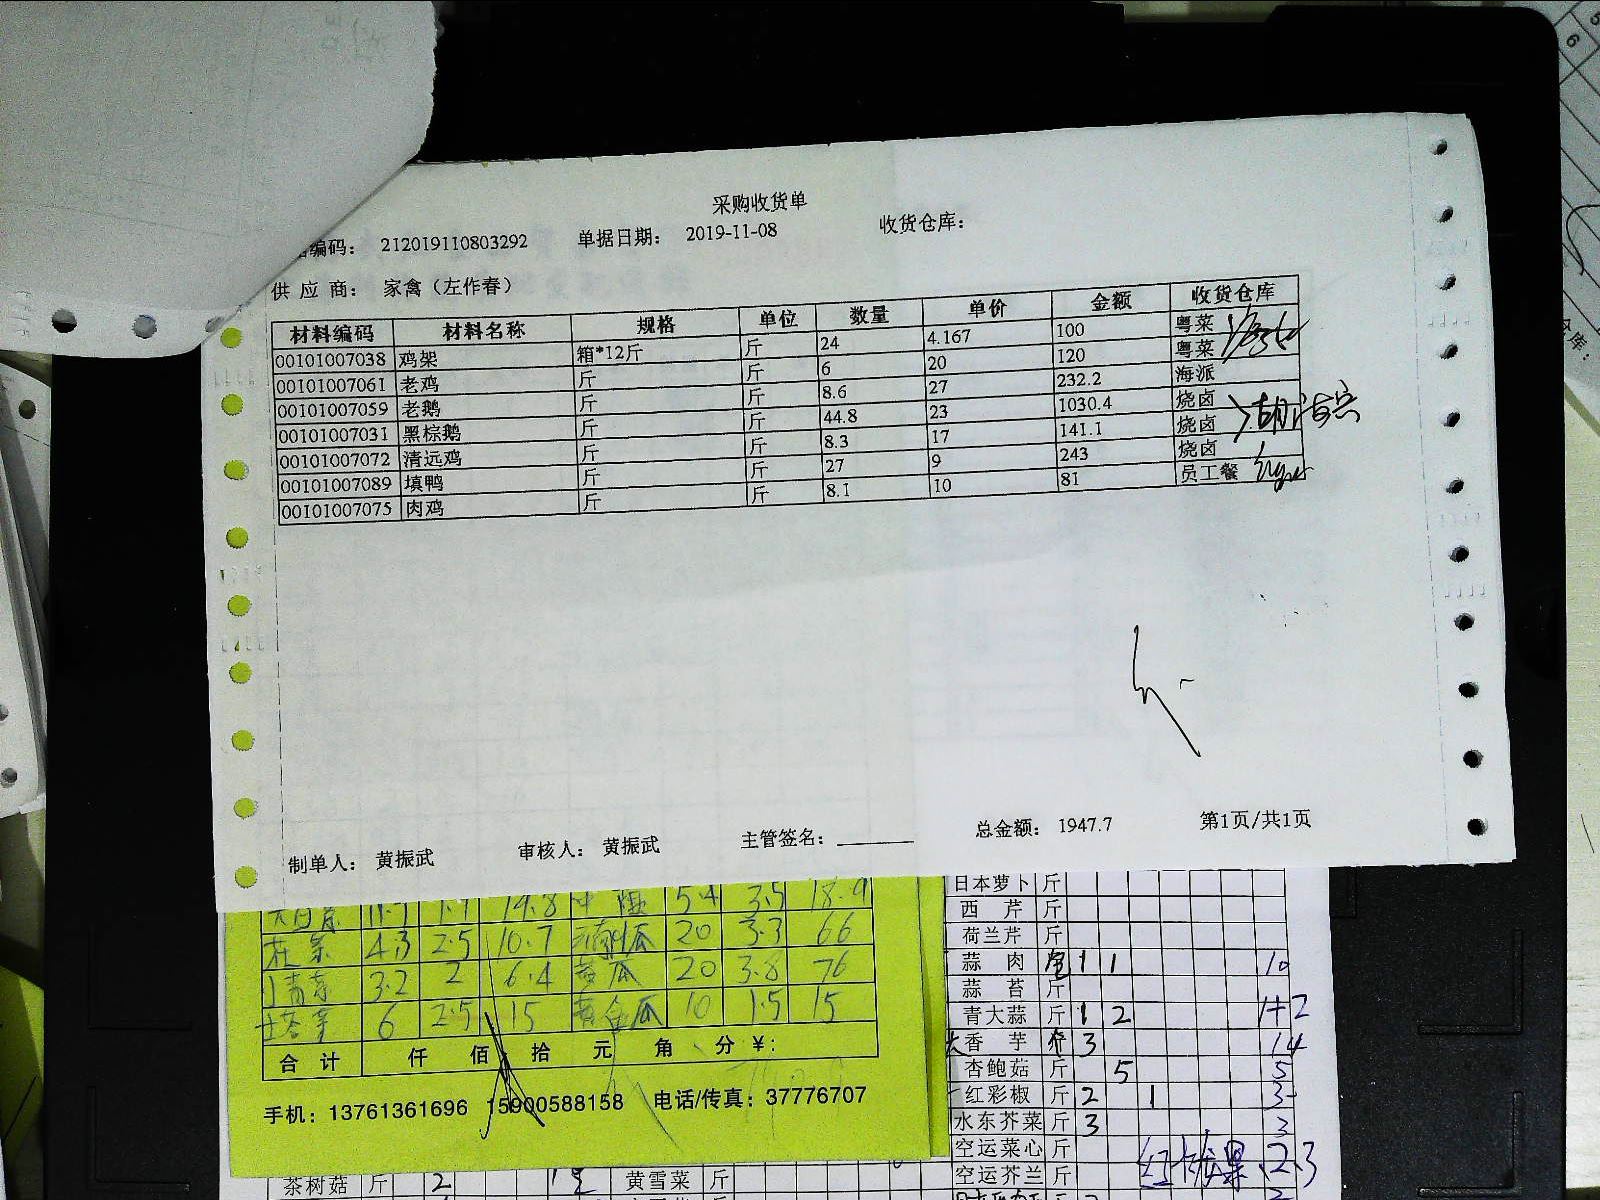 采购收货单
编码： 212019110803292 单据日期： 2019-11-08 收货仓库：
供 应 商： 家禽（左作春）
材料编码 材料名称 规格 单位 数量 单价 金额 收货仓库
00101007038 鸡架 箱*12斤 斤 24 4.167 100 粤菜
00101007061 老鸡 斤 斤 6 20 120 粤菜
00101007059 老鹅 斤 斤 8.6 27 232.2 海派
00101007031 黑棕鹅 斤 斤 44.8 23 1030.4 烧卤
00101007072 清远鸡 斤 斤 8.3 17 141.1 烧卤
00101007089 填鸭 斤 斤 27 9 243 烧卤
00101007075 肉鸡 斤 斤 8.1 10 81 员工餐
制单人： 黄振武 审核人： 黄振武 主管签名： 总金额： 1947.7 第1页/共1页
19.8 5.4 3.5 18.9
4.3 2.5 10.7 瓜 20 3.3 66
青菜 3.2 2 6.4 黄瓜 20 3.8 76
6 2.5 15 黄金瓜 10 1.5 15
合 计 仟 佰 拾 元 角 分 ¥：
手机：13761361696 15900588158 电话/传真：37776707
日本萝卜 斤
西 芹 斤
荷兰芹 斤
蒜 肉 1 1 10
蒜 苔 斤
青大蒜 斤 1 2 1+2
香 芋 3 14
杏鲍菇 斤 5 5
红彩椒 斤 2 1 3
水东芥菜 斤 3 3
空运菜心 斤
空运芥兰 斤
茶树菇 斤 2 黄雪菜 斤